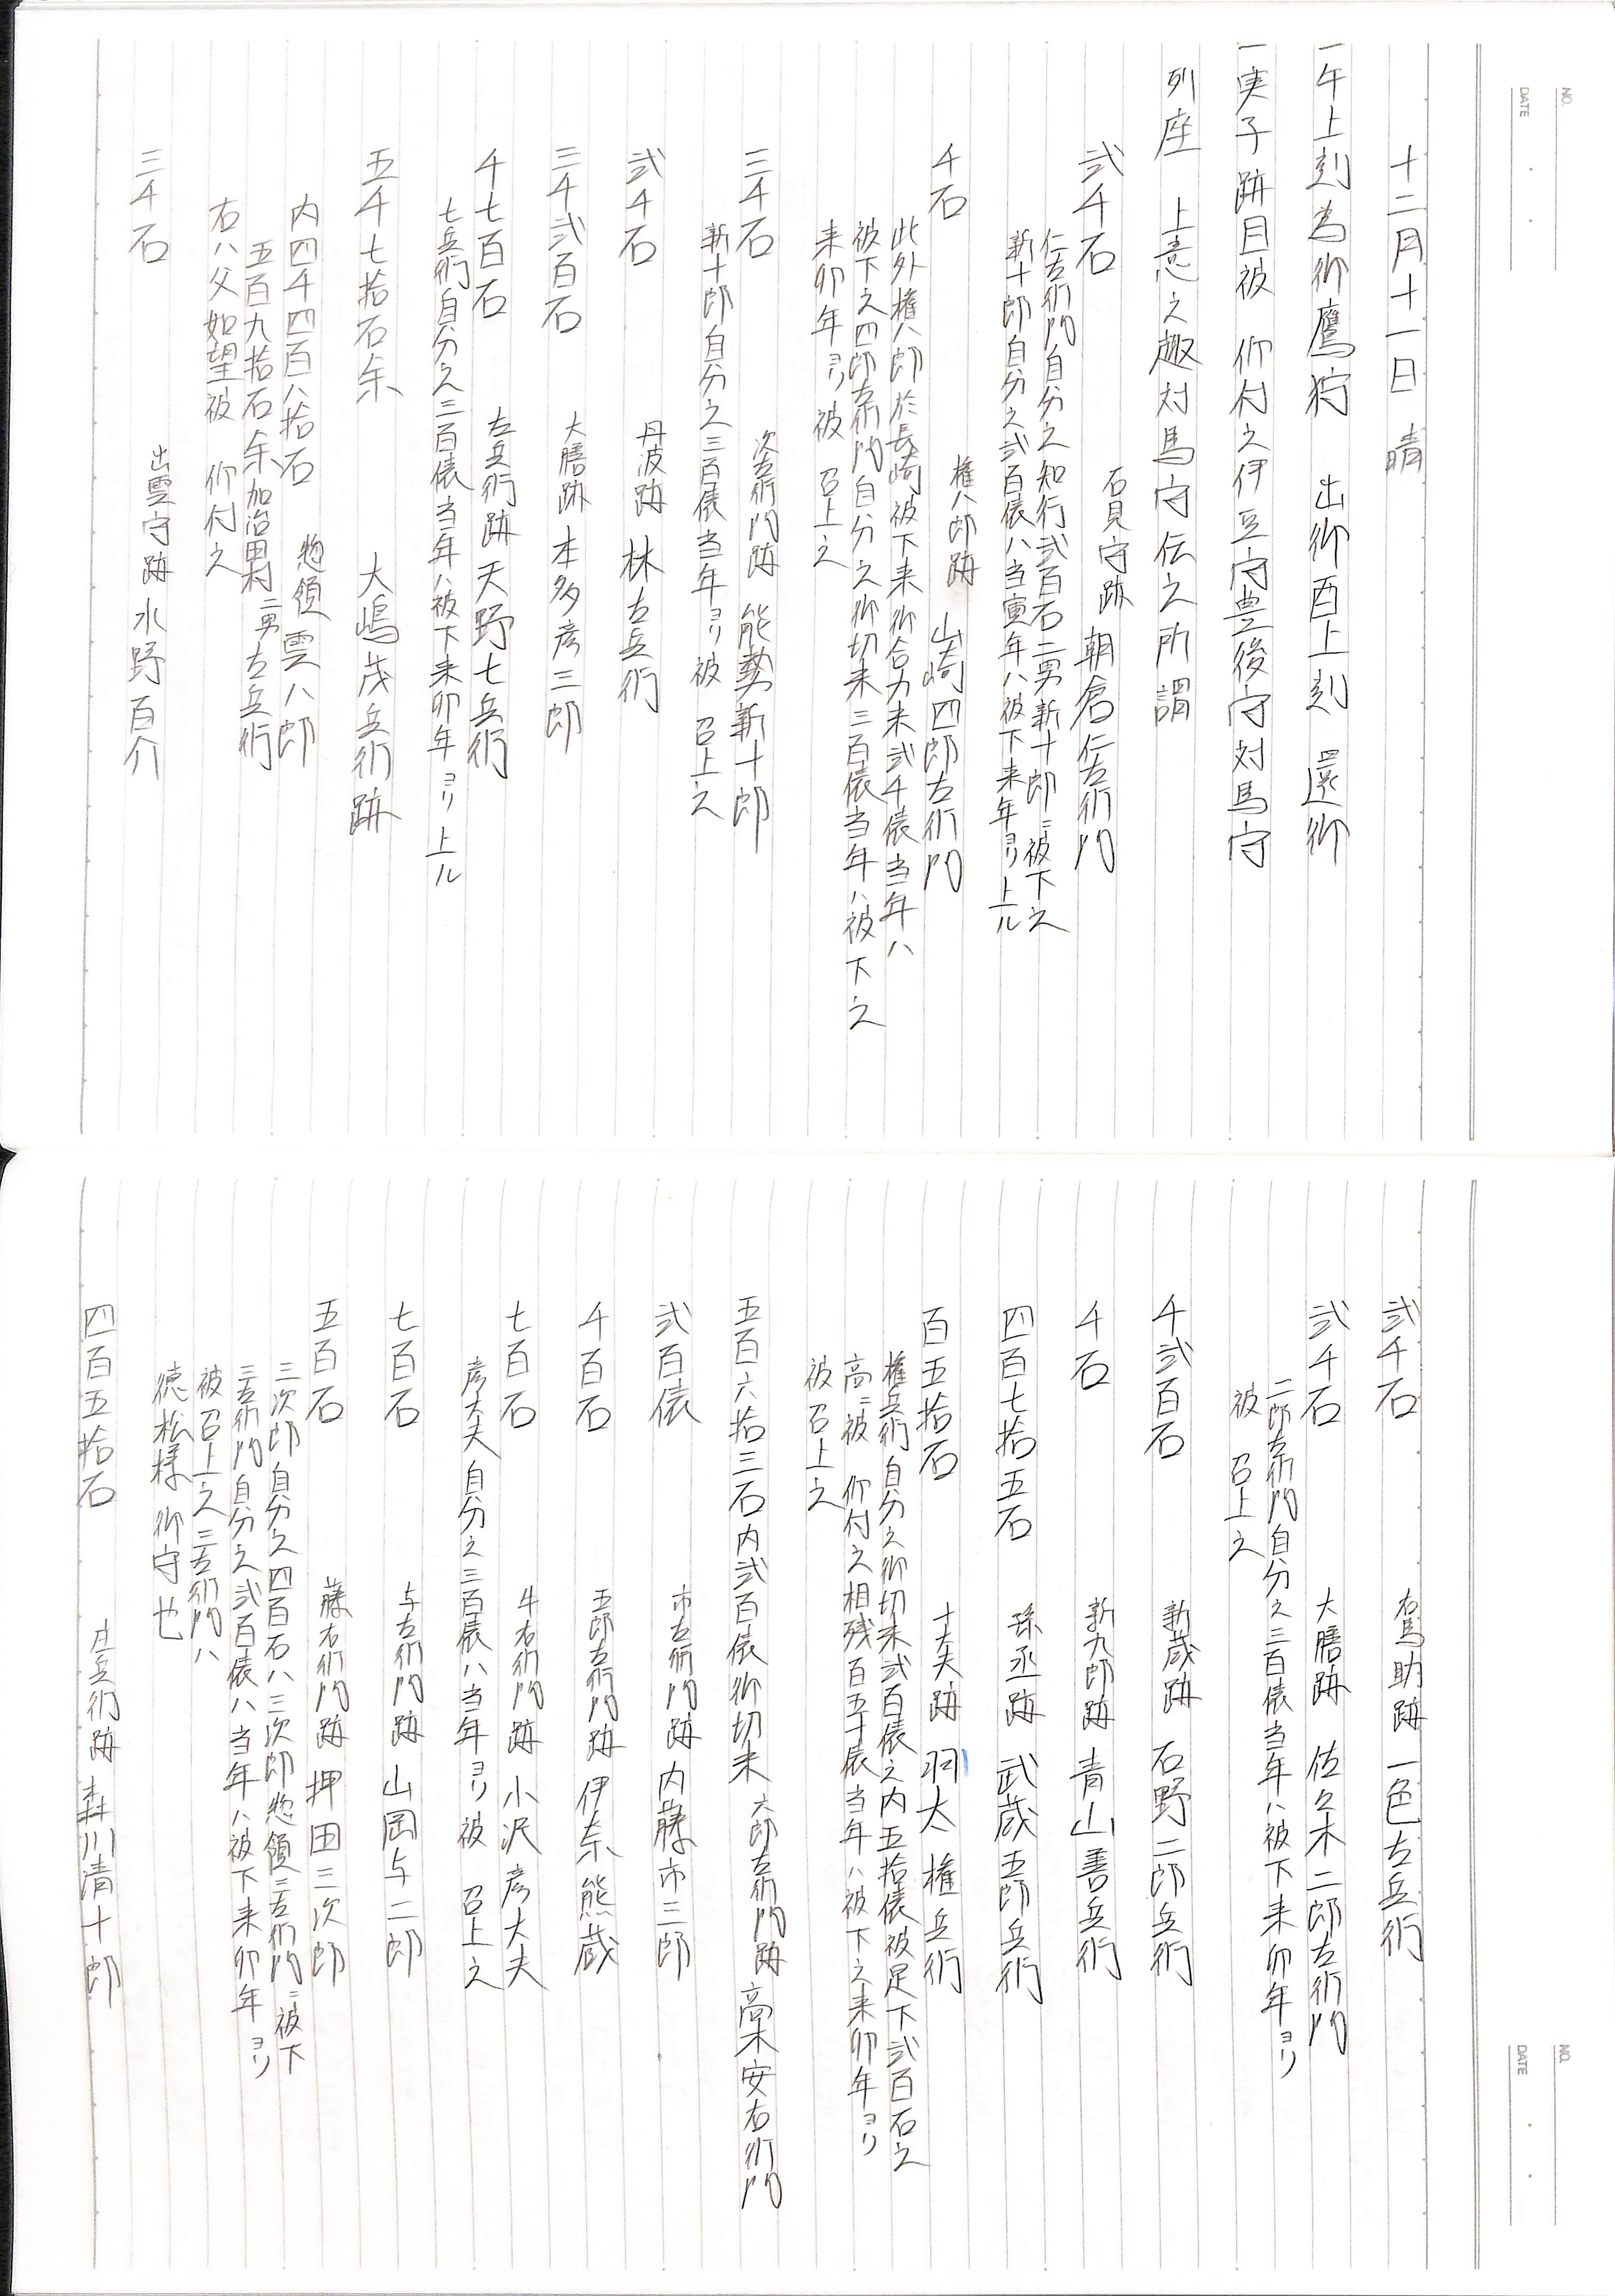 十二月十一日 晴
一午上刻為御鷹狩 出御酉上刻 還御
一実子跡目被 仰付之伊豆守豊後守対馬守
列座 上意之趣対馬守伝之所謂
弐千石 石見守跡 朝倉仁左衛門
仁左衛門自分之知行弐百石二男新十郎ニ被下之
新十郎自分之弐百俵ハ当寅年ハ被下来年ヨリ上ル
千石 権八郎跡 山崎四郎左衛門
此外権八郎於長崎被下来御合力米弐千俵当年ハ
被下之四郎左衛門自分之御切米三百俵当年ハ被下之
来卯年ヨリ被 召上之
三千石 次左衛門跡 能勢新十郎
新十郎自分之三百俵当年ヨリ被 召上之
弐千石 丹波跡 林左兵衛
三千弐百石 大膳跡 本多彦三郎
千七百石 左兵衛跡 天野七兵衛
七兵衛自分之三百俵当年ハ被下来卯年ヨリ上ル
五千七拾石余 大嶋茂兵衛跡
内四千四百八拾石 惣領 雲八郎
五百九拾石余加冶田村 二男左兵衛
右ハ父如望被 仰付之
三千石 出雲守跡 水野百介
NO.
DATE
弐千石 右馬助跡 一色左兵衛
弐千石 大膳跡 佐々木二郎左衛門
二郎左衛門自分之三百俵当年ハ被下来卯年ヨリ
被 召上之
千弐百石 新蔵跡 石野二郎兵衛
千石 新九郎跡 青山善兵衛
四百七拾五石 孫丞跡 武蔵五郎兵衛
百五拾石 十太夫跡 羽太権兵衛
権兵衛自分之御切米弐百俵之内五拾俵被足下弐百石之
高ニ被 仰付之相残百五十俵当年ハ被下之来卯年ヨリ
被召上之
五百六拾三石内弐百俵御切米 六郎左衛門跡 高木安右衛門
弐百俵 市左衛門跡 内藤市三郎
千百石 五郎左衛門跡 伊奈熊蔵
七百石 牛右衛門跡 小沢彦大夫
彦大夫自分之三百俵ハ当年ヨリ被 召上之
七百石 与左衛門跡 山岡与二郎
五百石 藤右衛門跡 押田三次郎
三次郎自分之四百石ハ三次郎惣領三左衛門ニ被下
三左衛門自分之弐百俵ハ当年ハ被下来卯年ヨリ
被召上之三左衛門ハ
徳松様御守也
四百五拾石 庄兵衛跡 森川清十郎
NO.
DATE